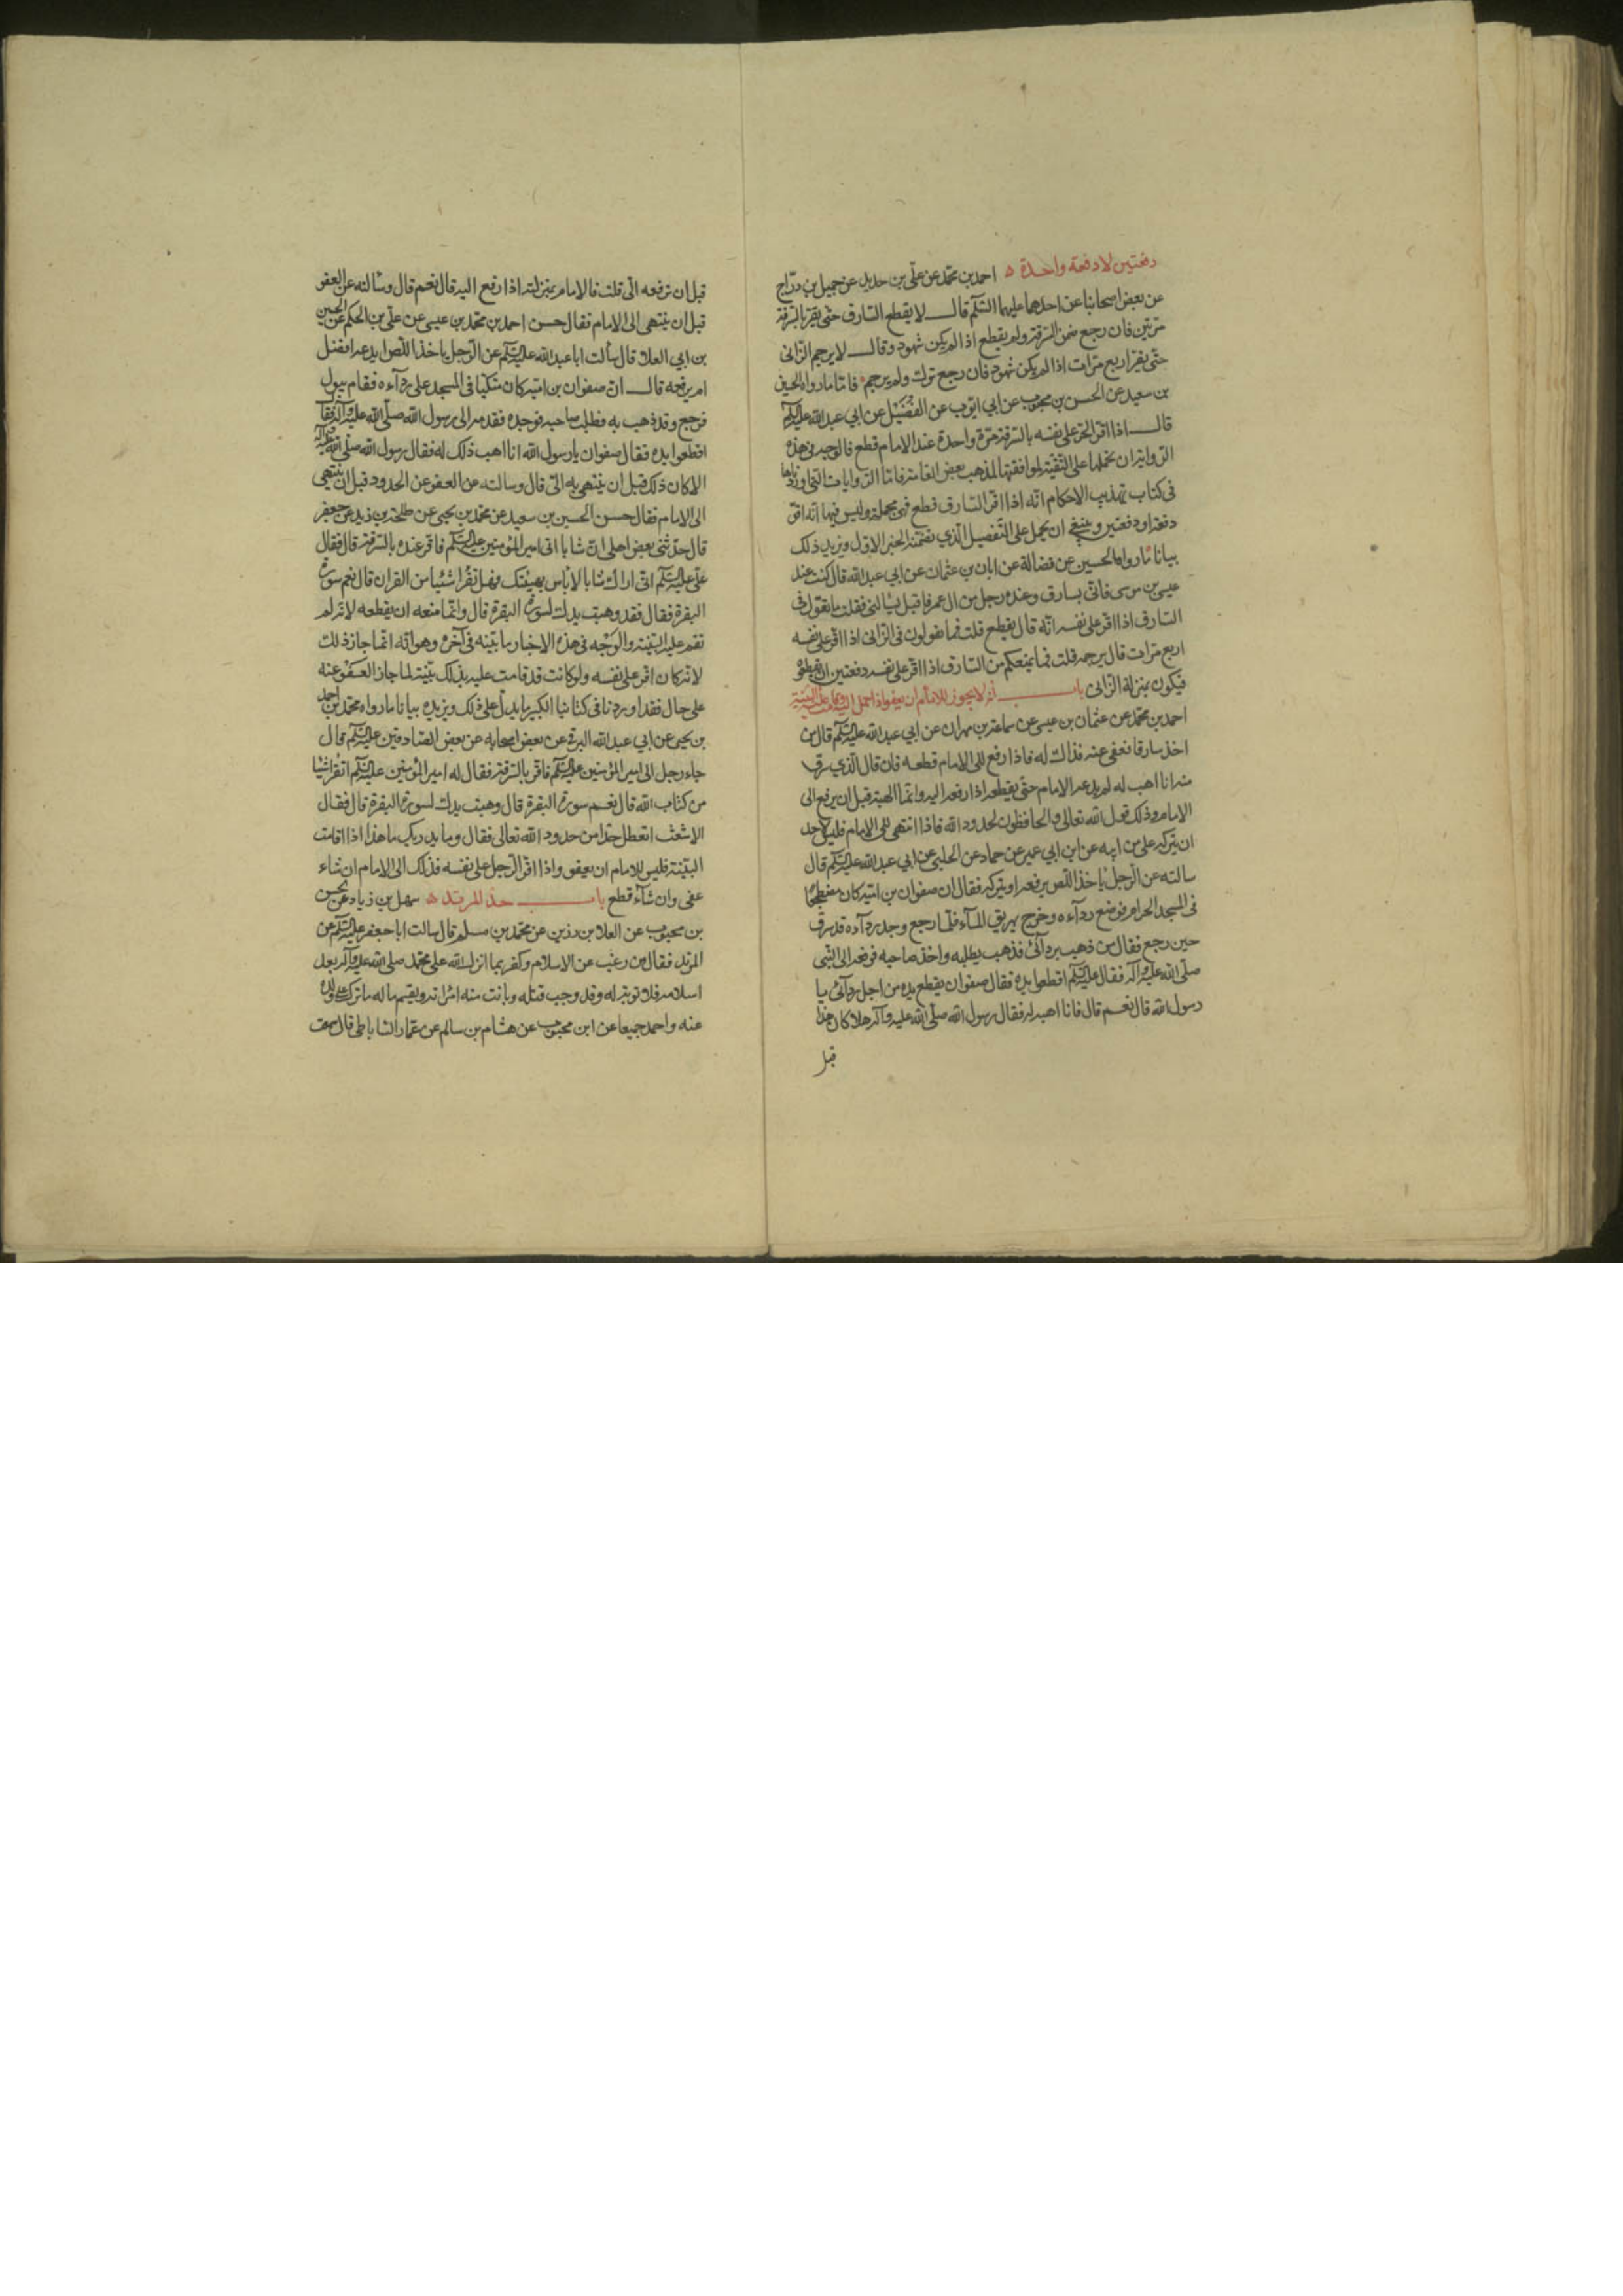 دفعتين لا دفعة واحدة ه احمد بن محمد عن علي بن حديد عن جميل بن درّاج
عن بعض اصحابنا عن احدهما عليهما السّلم قال لا يقطع السّارق حتّى يقرّ بالسّرقة
مرّتين فان رجع ضمن السّرقة ولم يقطع اذا لم يكن شهود وقال لا يرجم الزّاني
حتّى يقرّ اربع مرّات اذا لم يكن شهود فان رجع ترك ولم يرجم فامّا ما رواه الحسين
بن سعيد عن الحسن بن محبوب عن ابي ايّوب عن الفُضَيْل عن ابي عبد الله عليه السّلم
قال اذا اقرّ الحرّ على نفسه بالسّرقة مرّة واحدة عند الامام قطع فالوجه في هذه
الرّواية ان نحملها على التّقيّة لموافقتها لمذهب بعض العامّة فامّا الرّوايات التي اوردناها
في كتاب تهذيب الاحكام انّه اذا اقرّ السّارق قطع فهي مجملة وليس فيها انّه اقرّ
دفعة او دفعتين وينبغي ان يحمل على التّفصيل الّذي تضمّنه الخبر الاوّل ويزيد ذلك
بيانا مّا رواه الحسين عن فضالة عن ابان بن عثمان عن ابي عبد الله قال كنت عند
عيسى بن موسى فاتى بسارق وعنده رجل من ال عمر فاقبل يسالني فقلت ما تقول في
السّارق اذا اقرّ على نفسه انّه قال يقطع قلت فما تقولون في الزّاني اذا اقرّ على نفسه
اربع مرّات قال يرجمه قلت فما يمنعكم من السّارق اذا اقرّ على نفسه دفعتين ان تقطعوه
فيكون بمنزلة الزّاني باب انّه لا يجوز للامام ان يعفو اذا حمل اليه وقامت عليه البيّنة
احمد بن محمد عن عثمان بن عيسى عن سماعة بن مهران عن ابي عبد الله عليه السّلم قال من
اخذ سارقا فعفى عنه فذاك له فاذا رفع الى الامام قطعه فان قال الّذي سرق
منه انا اهب له لم يدعه الامام حتّى يقطعه اذا رفعه اليه وانّما الهبة قبل ان يرفع الى
الامام وذلك قول الله تعالى والحافظون لحدود الله فاذا انتهى الى الامام فليس لاحد
ان يتركه علي من ابيه عن ابن ابي عمير عن حماد عن الحلبي عن ابي عبد الله عليه السّلم قال
سالته عن الرّجل ياخذ اللّص يرفعه او يتركه فقال ان صفوان بن اميّة كان مضطجعًا
في المسجد الحرام فوضع ردآءه وخرج يهريق المآء فلمّا رجع وجد ردآءه قد سرق
حين رجع فقال من ذهب بردآئي فذهب يطلبه واخذ صاحبه فرفعه الى النّبي
صلّى الله عليه وآله فقال عليه السّلم اقطعوا يده فقال صفوان يقطع يده من اجل ردآئي يا
رسول الله قال نعم قال فانا اهبه له فقال رسول الله صلّى الله عليه وآله هلّا كان هذا
قبل
قبل ان ترفعه الىّ قلت فالامام بمنزلته اذا رفع اليه قال نعم قال وسالته عن العفو
قبل ان ينتهى الى الامام فقال حسن احمد بن محمد بن عيسى عن علي بن الحكم عن الحسين
بن ابي العلا قال سألت ابا عبد الله عليه السّلم عن الرّجل ياخذ اللّص ايدعه افضل
ام يرفعه قال انّ صفوان بن اميّة كان متكئا في المسجد على ردآءه فقام يبول
فرجع وقد ذهب به فطلب صاحبه فوجده فقدمه الى رسول الله صلّى الله عليه وآله فقال
اقطعوا يده فقال صفوان يا رسول الله انا اهب ذلك له فقال رسول الله صلّى الله عليه وآله
الا كان ذلك قبل ان ينتهى به الىّ قال وسالته عن العفو عن الحدود قبل ان ينتهي
الى الامام فقال حسن الحسين بن سعيد عن محمد بن يحيى عن طلحة بن زيد عن جعفر
قال حدّثني بعض اهلي انّ شابا اتى امير المؤمنين عليه السّلم فاقرّ عنده بالسّرقة قال فقال
علي عليه السّلم انّي اراك شابا لا باس بهيئتك فهل تقرأ شئيا من القران قال نعم سورة
البقرة فقال فقد وهبت يدك لسورة البقرة قال وانّما منعه ان يقطعه لانّه لم
تقم عليه البيّنة والوَجْه في هذه الاخبار ما بيّنه في آخره وهو انّه انّما جاز ذلك
لانّه كان اقرّ على نفسه ولو كانت قد قامت عليه بذلك بيّنة لما جاز العَفْو عنه
على حال فقد اوردنا في كتابنا الكبير ما يدلّ على ذلك ويزيده بيانا ما رواه محمد بن احمد
بن يحيى عن ابي عبد الله البرقي عن بعض اصحابه عن بعض الصّادقين عليه السّلم قال
جاء رجل الى امير المؤمنين عليه السّلم فاقرّ بالسّرقة فقال له امير المؤمنين عليه السّلم اتقرأ شيئا
من كتاب الله قال نعم سورة البقرة قال وهبت يدك لسورة البقرة قال فقال
الاشعث اتعطل حدّا من حدود الله تعالى فقال وما يدريك ما هذا اذا اقامت
البيّنة فليس للامام ان يعفو واذا اقرّ الرّجل على نفسه فذلك الى الامام ان شاء
عفى وان شآء قطع باب حدّ المرتد ه سهل بن زياد عن الحسن
بن محبوب عن العلا بن رزين عن محمد بن مسلم قال سالت ابا جعفر عليه السّلم عن
المرتد فقال من رغب عن الاسلام وكفر بما انزل الله على محمّد صلى الله عليه وآله بعد
اسلامه فلا توبة له وقد وجب قتله وبانت منه امرأته ويقسم ماله ما ترك على ولده
عنه واحمد جميعا عن ابن محبوب عن هشام بن سالم عن عمّار الساباطي قال سمعت